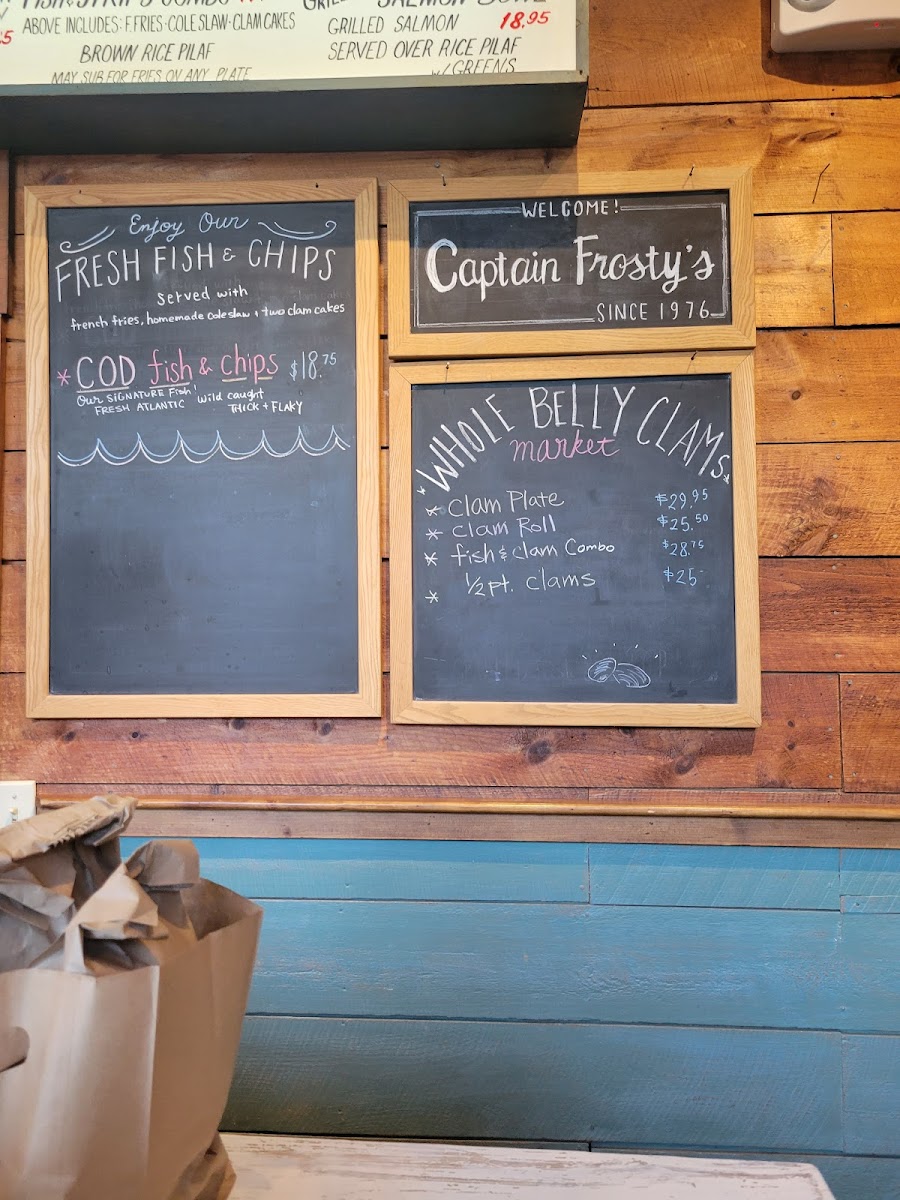 FISH & STRIPS COMBO
ABOVE INCLUDES: F.FRIES · COLE SLAW · CLAM CAKES
BROWN RICE PILAF
MAY SUB FOR FRIES ON ANY PLATE
SALMON BOWL
GRILLED SALMON 18.95
SERVED OVER RICE PILAF
w/ GREENS
Enjoy Our
FRESH FISH & CHIPS
Served with
french fries, homemade cole slaw + two clam cakes
* COD fish & chips $18.75
Our SIGNATURE Fish!
FRESH ATLANTIC
wild caught
THICK + FLAKY
WELCOME!
Captain Frosty's
SINCE 1976
* WHOLE BELLY CLAMS *
market
* Clam Plate $29.95
* Clam Roll $25.50
* fish & clam Combo $28.75
* 1/2 pt. clams $25-